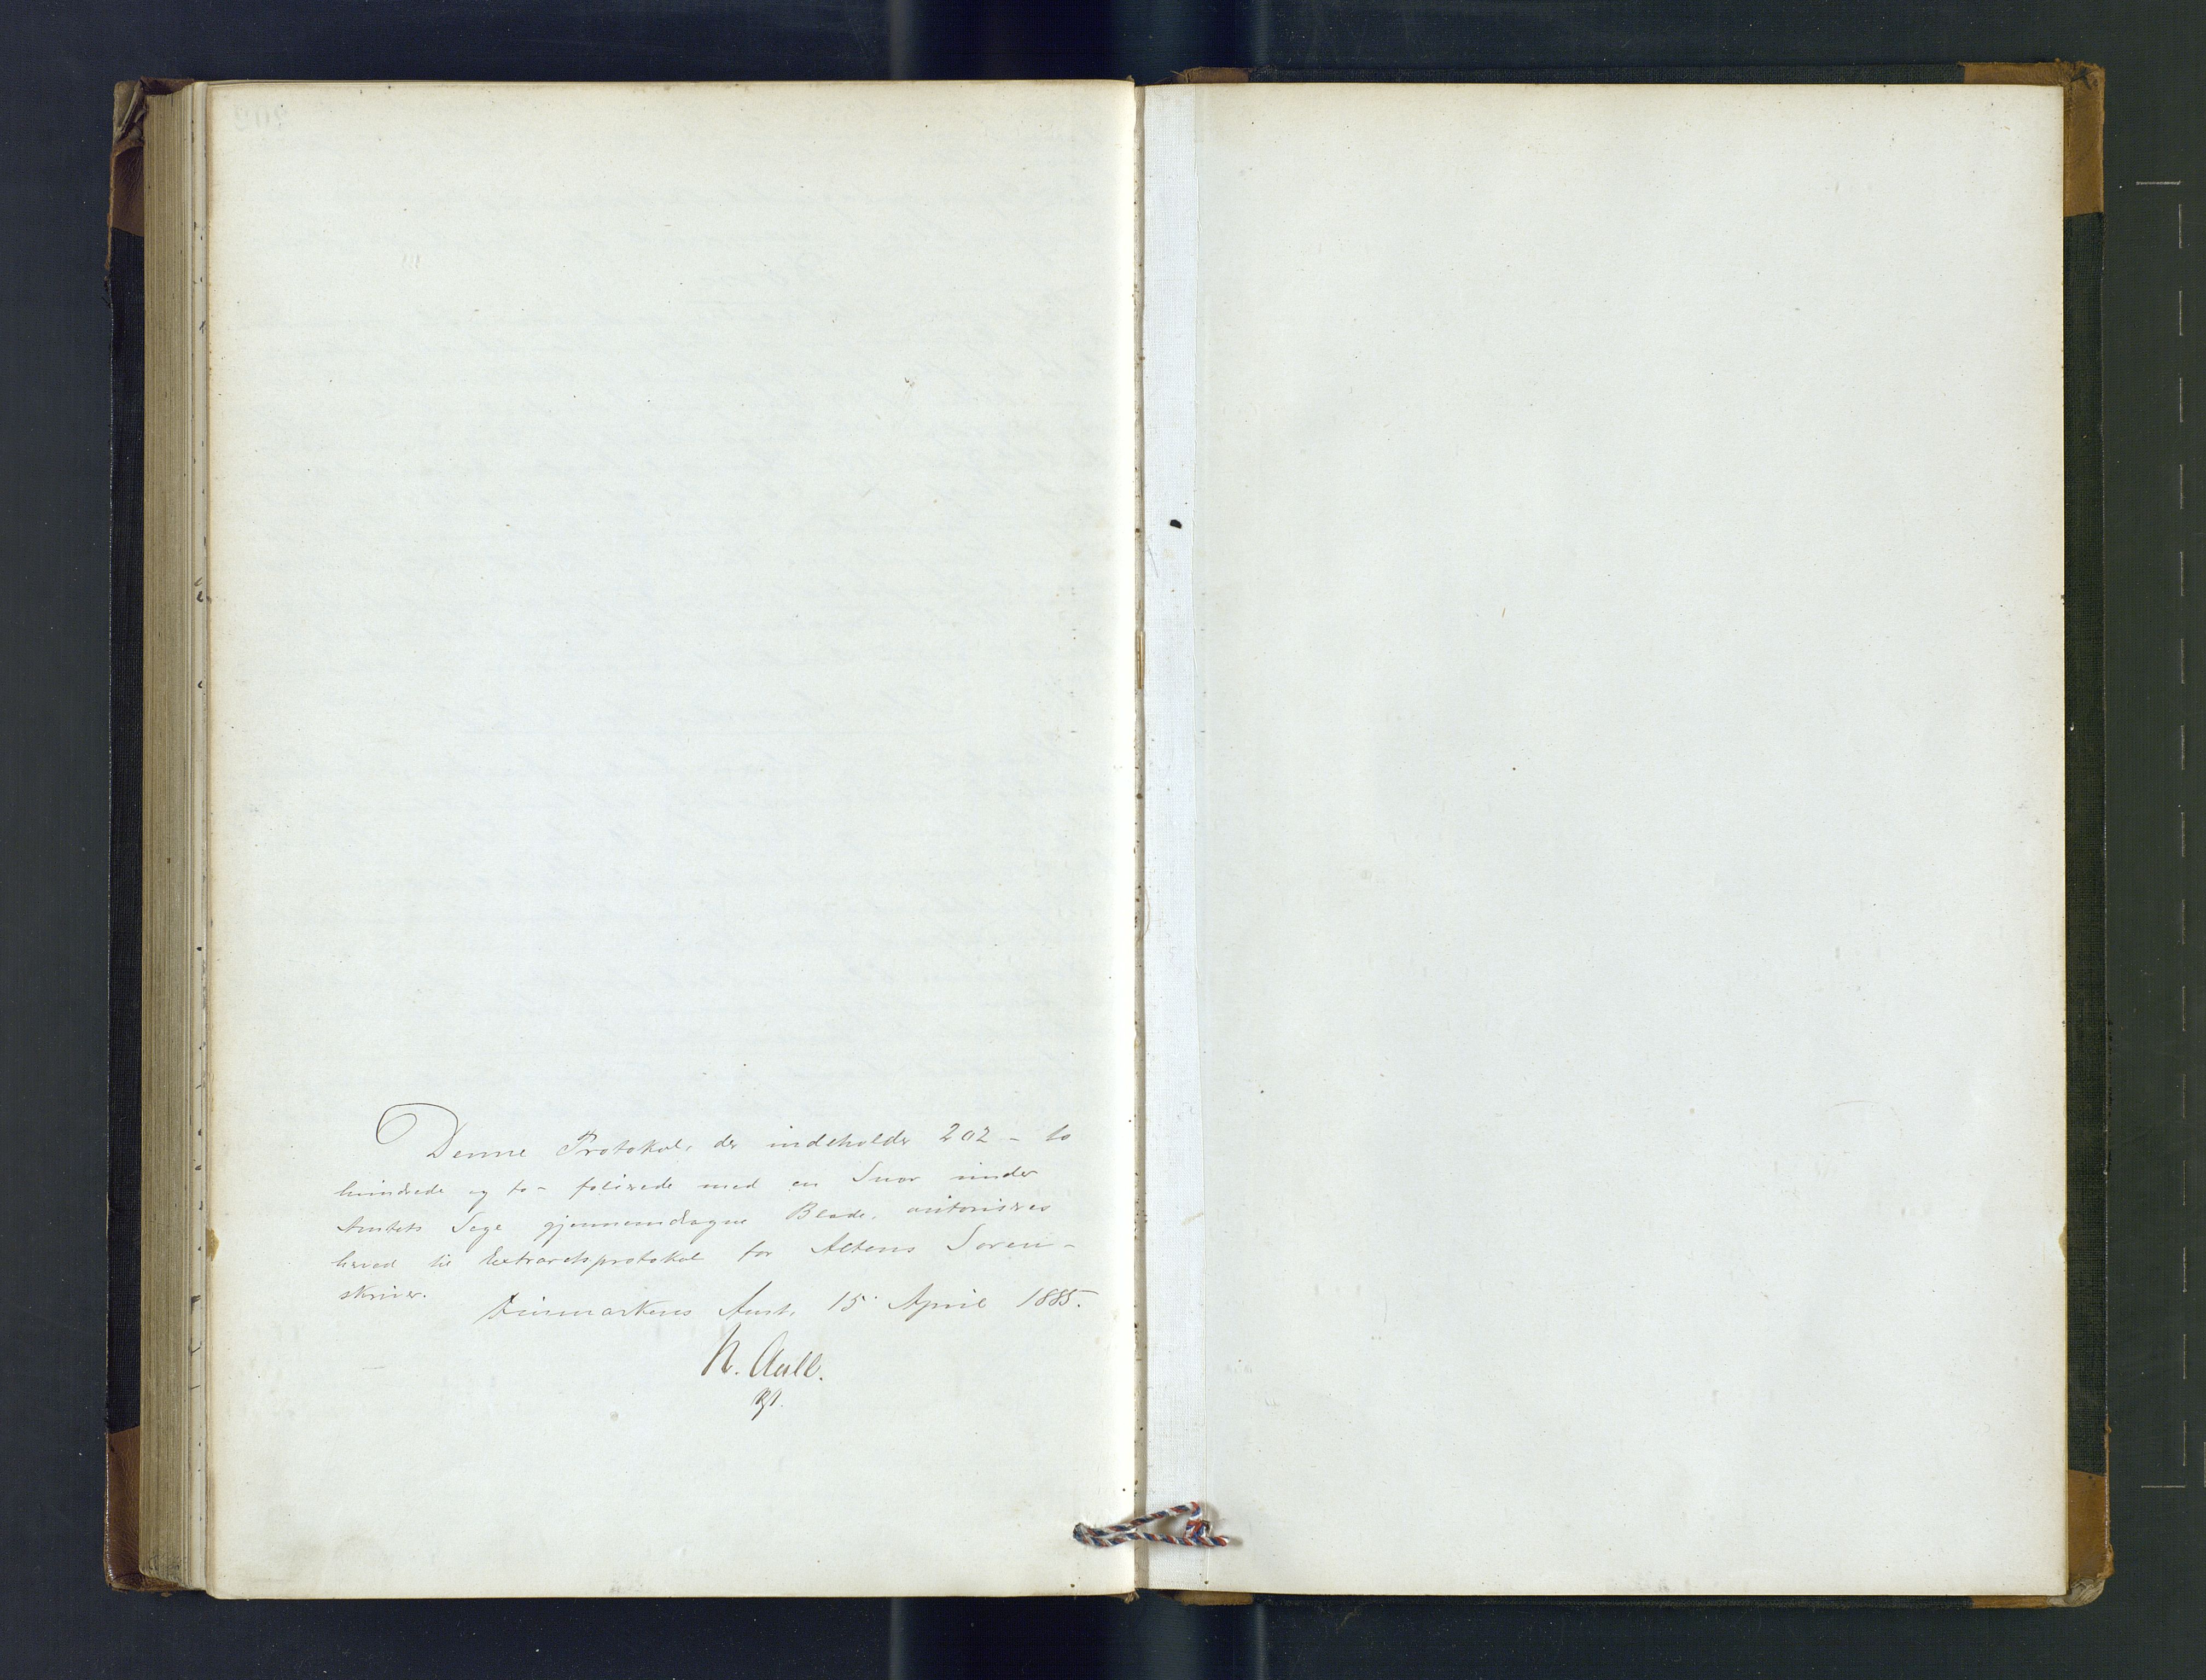 Denne Protokol, der indeholder 202 – to
hundrede og to – folierede med en Snor under
Amtets Segl gjennemdragne Blade, autoriseres
herved til Extraretsprotokol for Altens Soren-
skriver.
Finmarkens Amt, 15 April 1885.
N. Aall.